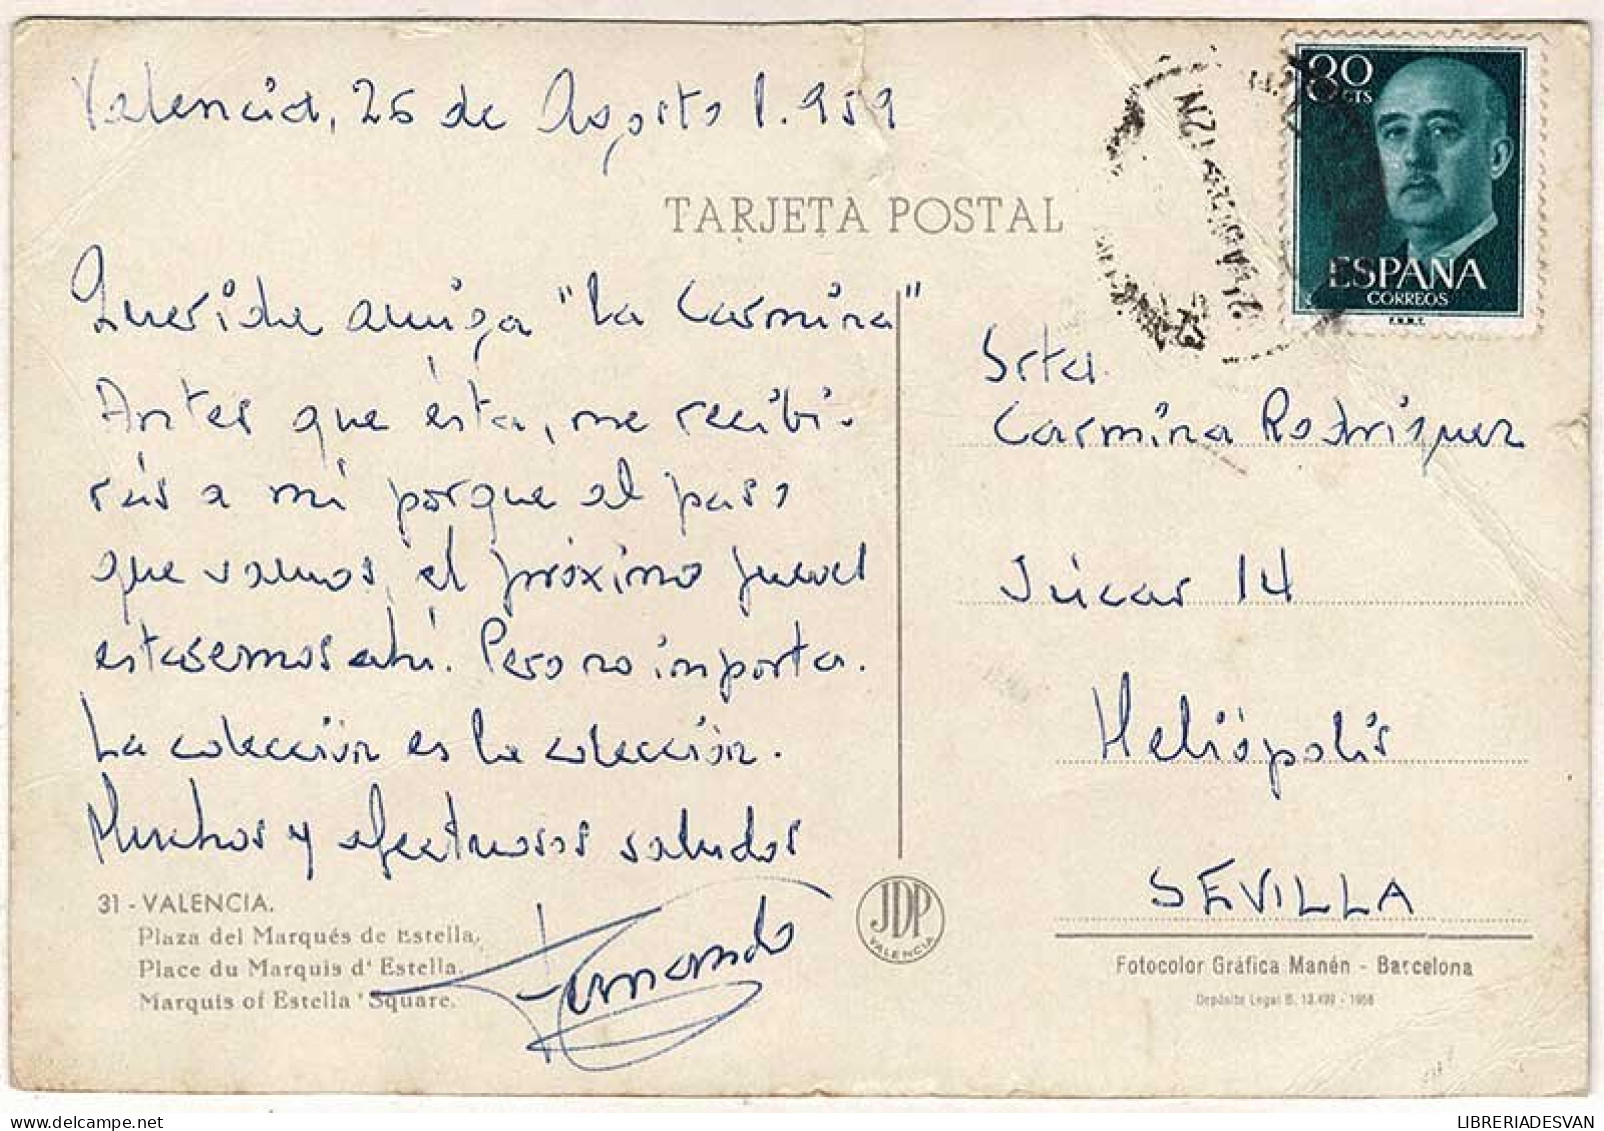 Valencia, 26 de Agosto 1.959
TARJETA POSTAL
80
CTS
ESPAÑA
CORREOS
F.N.M.T.
Querida amiga "La Carmina"
Antes que ésta, me recibi-
rás a mí porque al paso
que vamos, el próximo jueves
estaremos ahí. Pero no importa.
La colección es la colección.
Muchos y afectuosos saludos
Fernando
31 - VALENCIA.
Plaza del Marqués de Estella.
Place du Marquis d' Estella.
Marquis of Estella 'Square.
JDP
VALENCIA
Srta.
Carmina Rodríguez
Júcar 14
Heliópolis
SEVILLA
Fotocolor Gráfica Manén - Barcelona
Depósito Legal B. 13.499 - 1958
LIBRERIADESVAN